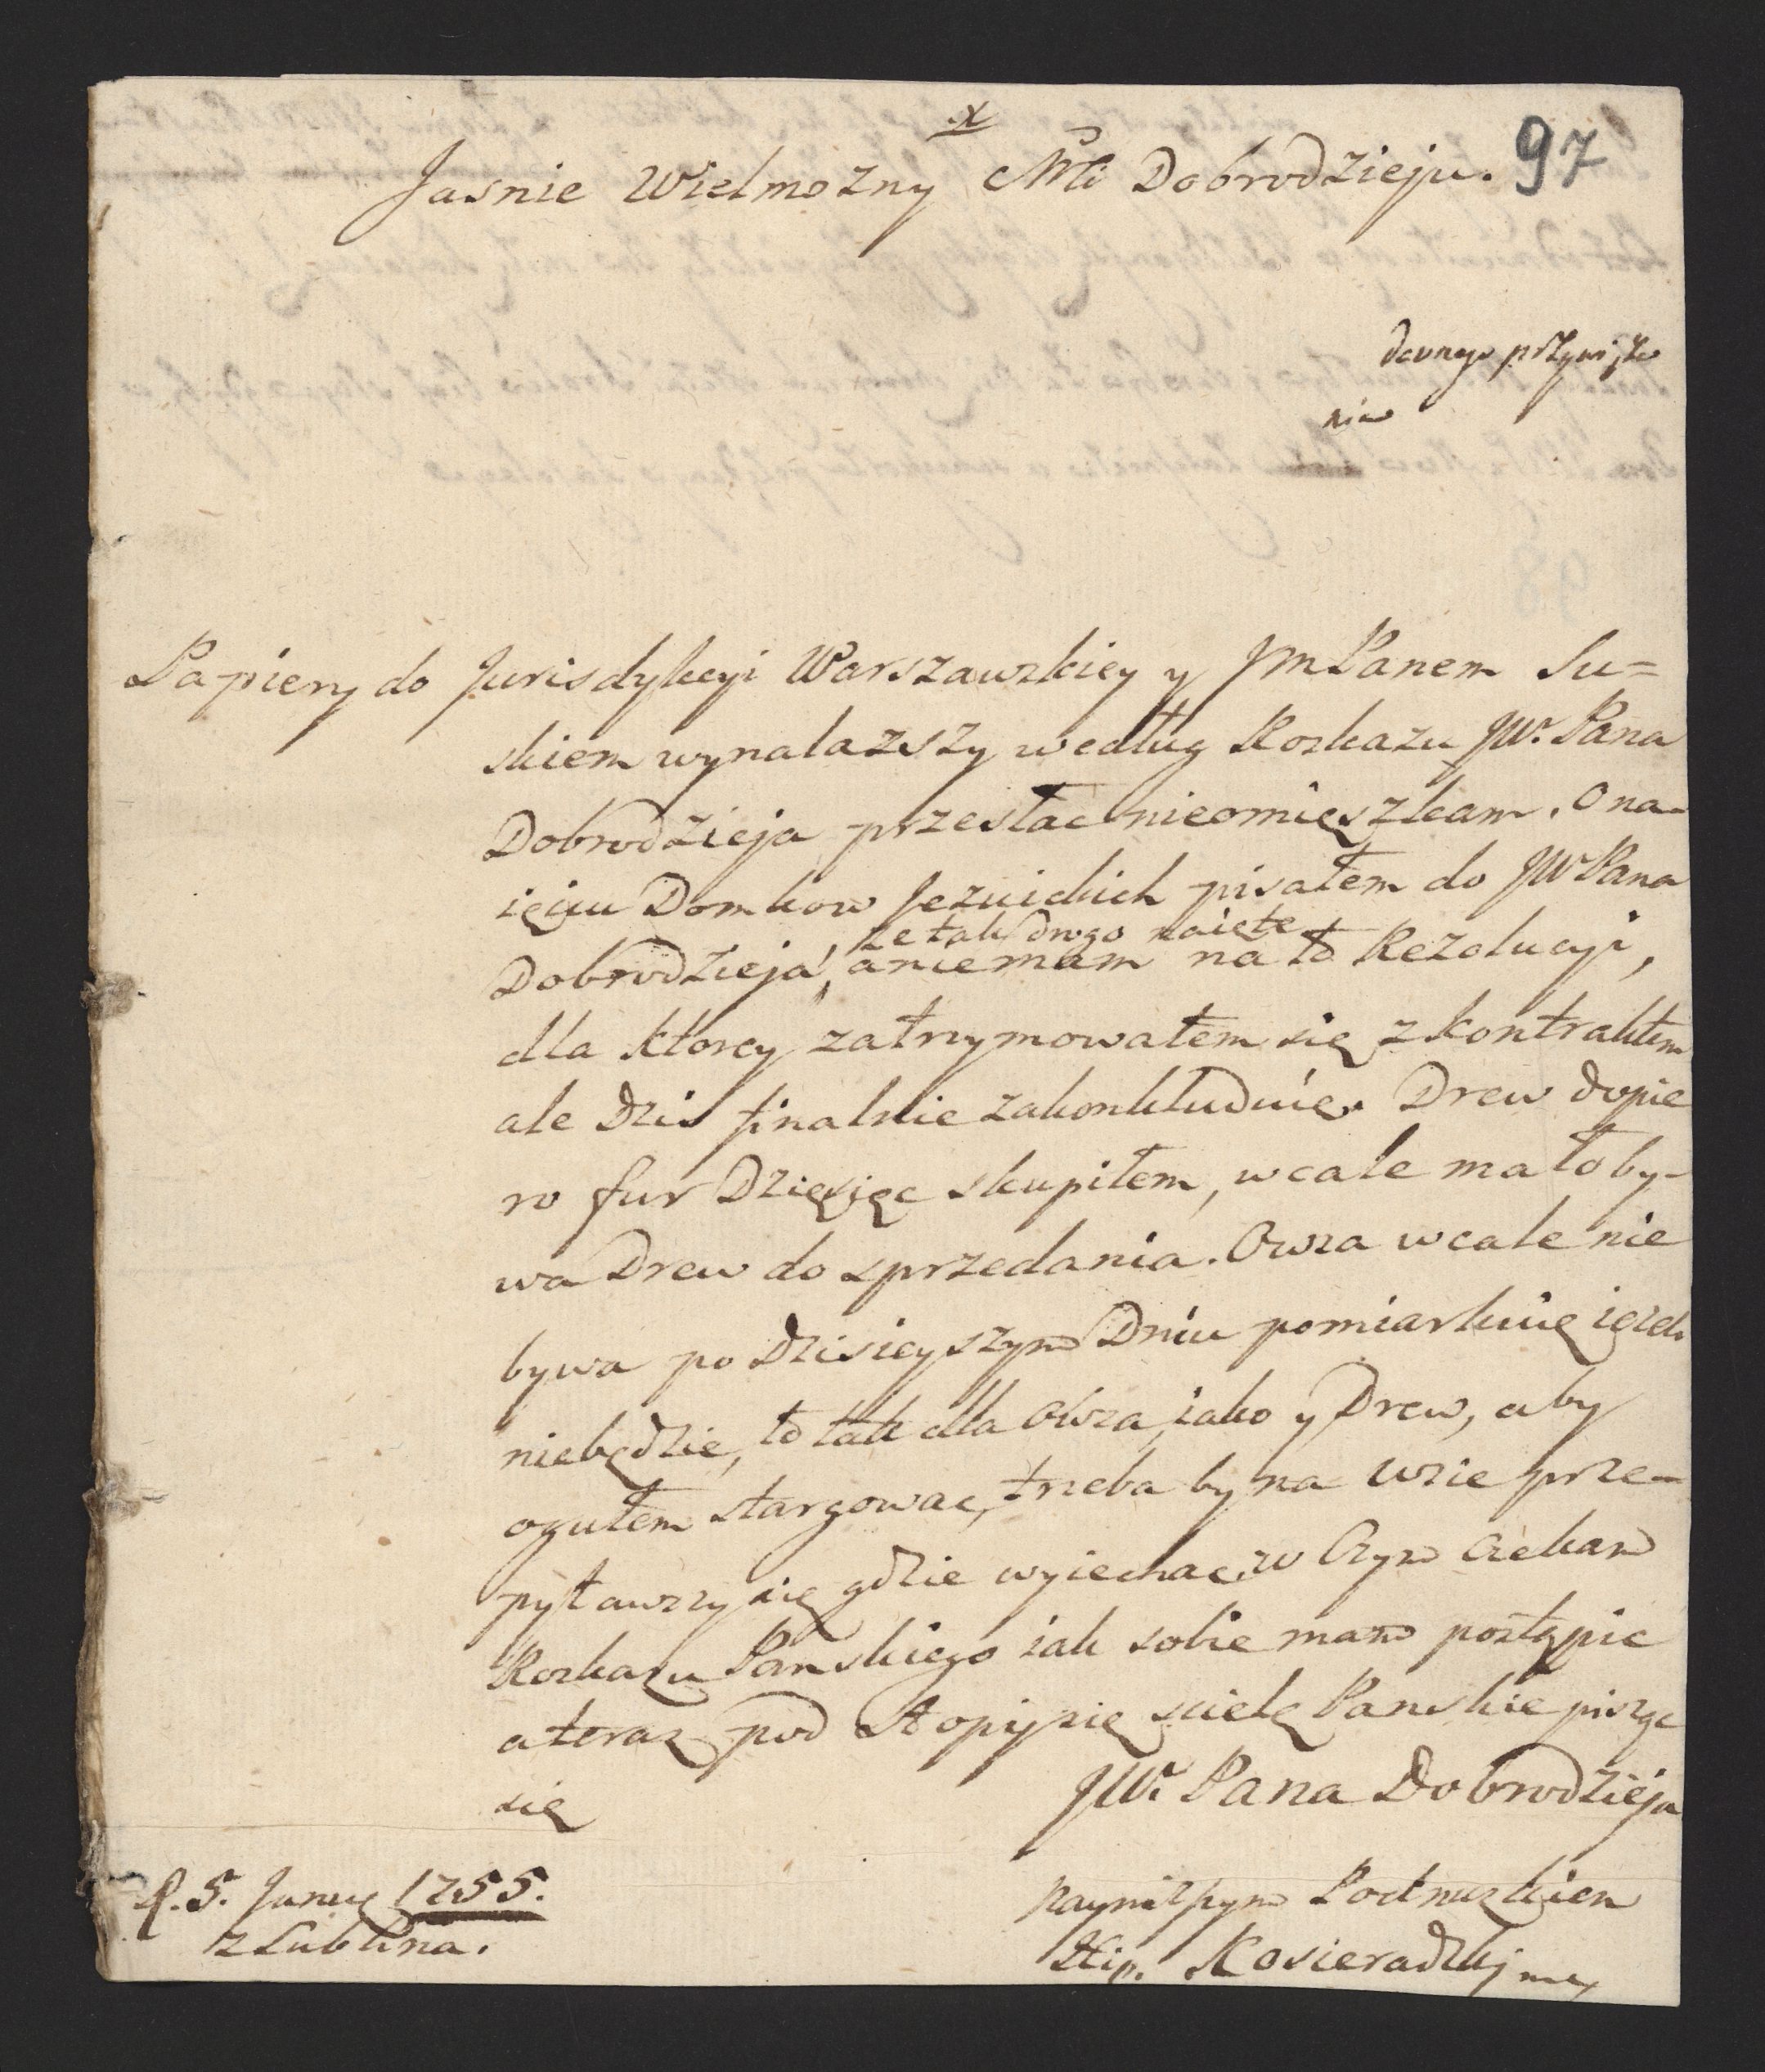 x
Jasnie Wielmozny Mci Dobrodzieju. 97
Papiery do Jurisdykcyi Warszawskiey y JmPanem Su=
skiem wynalazszy według Roskazu JW. Pana
Dobrodzieja przesłac nieomięszkam. O na-
ięciu Domkow Jezuickich pisałem do JWPana
ze tak drogo naięte
Dobrodzieja, aniemam na to Rezolucyi,
dla ktorey zatrzymowałem się z kontraktem
ale Dzis finalnie zakonkluduię. Drew dopie
ro fur Dzięsięc skupiłem, wcale mało by-
wa Drew do sprzedania. Owsa wcale nie
bywa po Dzisieyszym Dniu pomiarkuię ieżeli
niebędzie, to tak dla Owsa, iako y Drew, aby
ogułem stargowac, trzeba by na wsie prze-
pytawszy się gdzie wyiechac, w czym czekam
Roskazu Panskiego iak sobie mam postąpic
a teraz pod Stopy się scielę Panskie pisząc
się JW. Pana Dobrodzieja
R. 5. Junii 1755. nayniszym Podnuszkiem
z Lublina. Kosieradzki mp